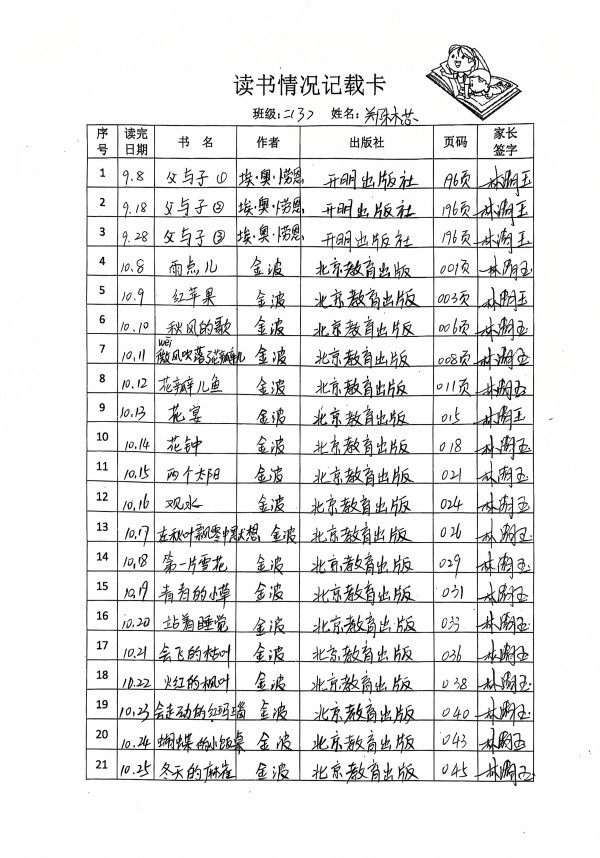 读书情况记载卡
班级:二(3) 姓名:
序号 读完日期 书 名 作者 出版社 页码 家长签字
1 9.8 父与子① 埃·奥·劳恩 开明出版社 196页 林湖玉
2 9.18 父与子② 埃·奥·劳恩 开明出版社 196页 林湖玉
3 9.28 父与子③ 埃·奥·劳恩 开明出版社 196页 林湖玉
4 10.8 雨点儿 金波 北京教育出版 001页 林湖玉
5 10.9 红苹果 金波 北京教育出版 003页 林湖玉
6 10.10 秋风的歌 金波 北京教育出版 006页 林湖玉
wei
7 10.11 微风吹落了花瓣儿 金波 北京教育出版 008页 林湖玉
8 10.12 花瓣儿鱼 金波 北京教育出版 011页 林湖玉
9 10.13 花宴 金波 北京教育出版 015 林湖玉
10 10.14 花钟 金波 北京教育出版 018 林湖玉
11 10.15 两个太阳 金波 北京教育出版 021 林湖玉
12 10.16 观水 金波 北京教育出版 024 林湖玉
13 10.17 在秋叶飘零中默想 金波 北京教育出版 026 林湖玉
14 10.18 第一片雪花 金波 北京教育出版 029 林湖玉
15 10.19 青青的小草 金波 北京教育出版 031 林湖玉
16 10.20 站着睡觉 金波 北京教育出版 033 林湖玉
17 10.21 会飞的枯叶 金波 北京教育出版 036 林湖玉
18 10.22 火红的枫叶 金波 北京教育出版 038 林湖玉
19 10.23 会走动的红玛瑙 金波 北京教育出版 040 林湖玉
20 10.24 蝴蝶的小饭桌 金波 北京教育出版 043 林湖玉
21 10.25 冬天的麻雀 金波 北京教育出版 045 林湖玉